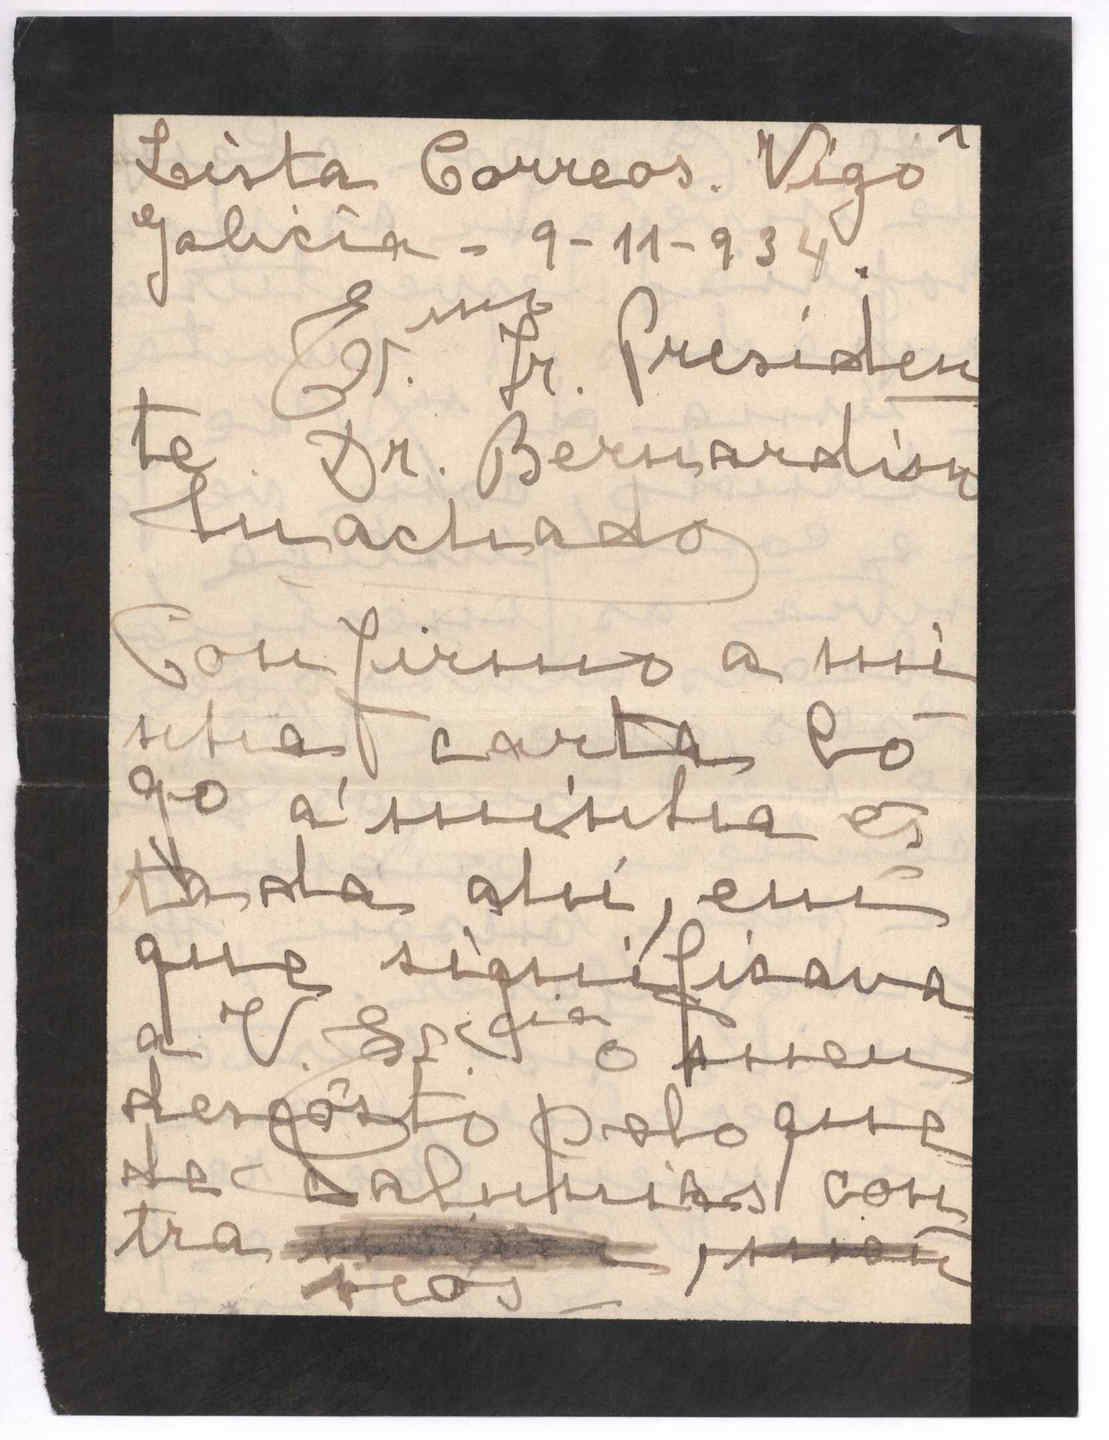 Lista Correos. Vigo 1
Galicia - 9-11-934.
Exmo. Sr. Presiden
te Dr. Bernardino
Machado
Confirmo a mi
nha carta ló
go á minha es
tada ahi, em
que significava
a V. Excia o meu
desgôsto pelo que
de calumias con
tra